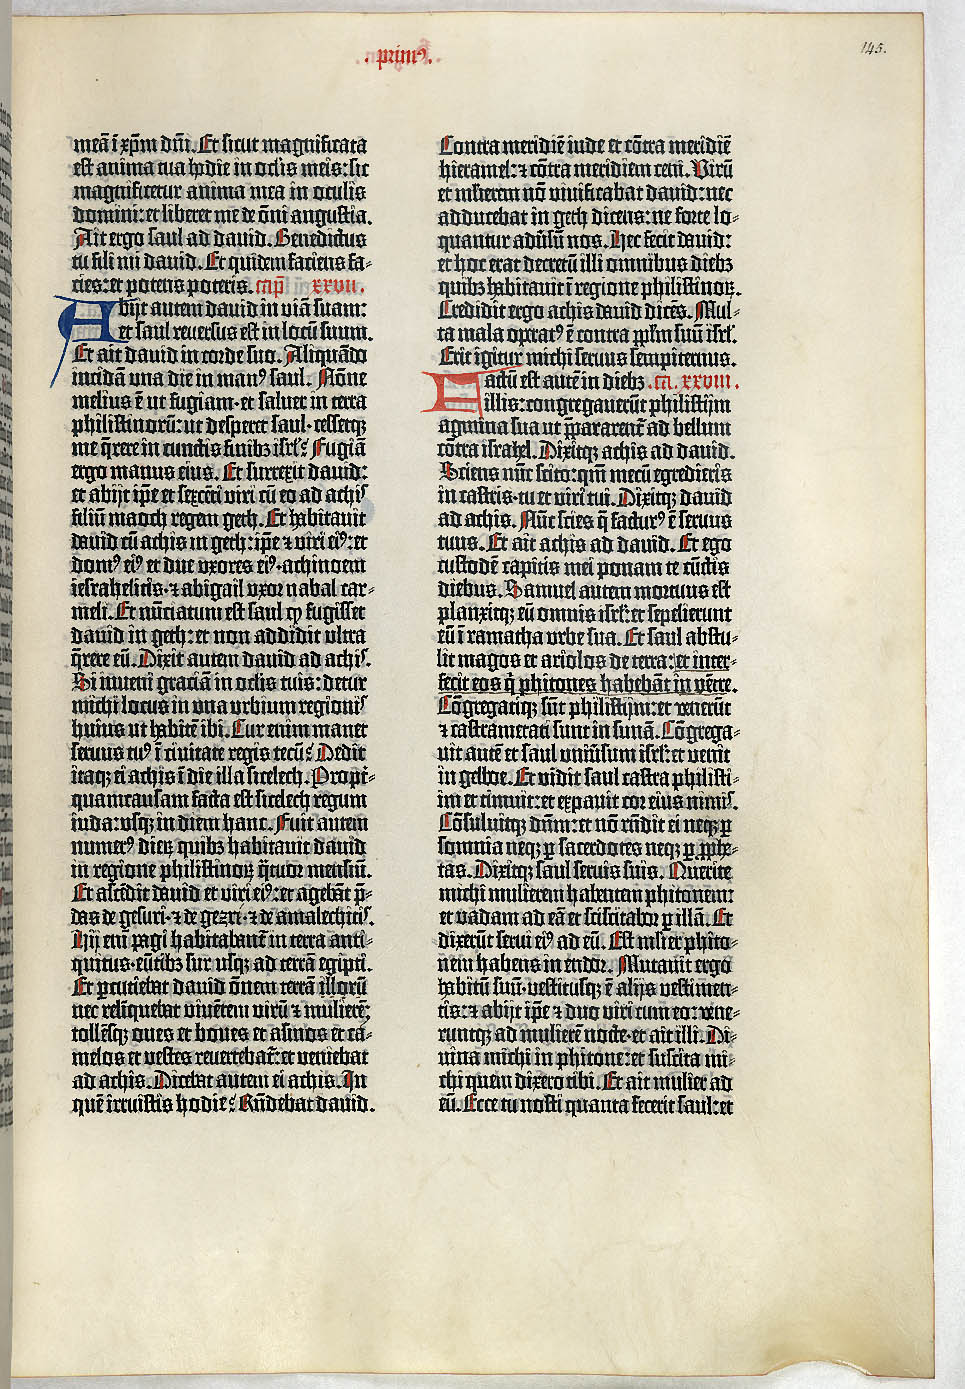 . primꝰ.
145.
meā ī xp̄m dn̄i. Et sicut magnificata
est anima tua hodie in oclis meis: sic
magnificetur anima mea in oculis
domini: et liberet me de ōni angustia.
Ait ergo saul ad david. Benedictus
tu fili mi david. Et quidem faciens fa-
cies: et potens poteris. cap̄ xxvii.
Abijt autem david in viā suam:
et saul reversus est in locū suum.
Et ait david in corde suo. Aliquādo
incidā una die in manꝰ saul. Nōne
melius ē ut fugiam · et salver in terra
philistinorū: ut desperet saul · cessetqꝫ
me q̄rere in cunctis finibꝫ isrl̄: Fugiā
ergo manus eius. Et surrexit david:
et abijt ip̄e et sexcēti viri cū eo ad achis
filiū maoch regem geth. Et habitavit
david cū achis in geth: ip̄e ⁊ viri eiꝰ: et
domꝰ eiꝰ et due vxores eiꝰ · achinoem
iesrahelitis · ⁊ abigail vxor nabal car-
meli. Et nūciatum est saul ꝙ fugisset
david in geth: et non addidit vltra
q̄rere eū. Dixit autem david ad achis.
Si inveni graciā in oclis tuis: detur
michi locus in una urbium regionis
huius ut habitē ibi. Cur enim manet
servus tuꝰ ī civitate regis tecū: Dedit
itaqꝫ ei achis ī die illa sicelech. Propt-
quamcausam facta est sicelech regum
iuda: usqꝫ in diem hanc. Fuit autem
numerꝰ dieꝝ quibꝫ habitavit david
in regione philistinoꝝ q̄tuor mensiū.
Et ascēdit david et viri eiꝰ: et agebāt p̄-
das de gesuri · ⁊ de gezri · ⁊ de amalechitis.
Hij eni pagi habitabant in terra anti-
quitus · eūtibꝫ sur usqꝫ ad terrā egipti.
Et ꝑcutiebat david ōnem terrā illorū
nec relīquebat vivētem virū ⁊ mulierē;
tollēsqꝫ oves et boves et asinos et ca-
melos et vestes revertebat: et veniebat
ad achis. Dicebat autem ei achis. In
quē irruistis hodie: Rn̄debat david.
Contra meridiē iude et cōtra meridiē
hieramel: ⁊ cōtra meridiem ceni. Virū
et mlierem nō vivificabat david: nec
adducebat in geth dicens: ne forte lo-
quantur adūsū nos. Hec fecit david:
et hoc erat decretū illi omnibus diebꝫ
quibꝫ habitavit ī regione philistinoꝝ.
Credidit ergo achis david dicēs. Mul-
ta mala operatꝰ ē contra pp̄lm suū isrl̄.
Erit igitur michi servus sempiternus.
Factū est autē in diebꝫ .ca. xxviii.
illis: congregaverūt philistijm
agmina sua ut p̄pararent ad bellum
cōtra israhel. Dixitqꝫ achis ad david.
Sciens nūc scito: qm̄ mecū egredieris
in castris · tu et viri tui. Dixitqꝫ david
ad achis. Nūc scies q̄ facturꝰ ē servus
tuus. Et ait achis ad david. Et ego
custodē capitis mei ponam te cūctis
diebus. Samuel autem mortuus est
planxitqꝫ eū omnis isrl̄: et sepelierunt
eū ī ramatha urbe sua. Et saul abstu-
lit magos et ariolos de terra: et inter-
fecit eos q̄ phitones habebāt in vētre.
Cōgregatiqꝫ sūt philistijm: et venerūt
⁊ castrametati sunt in sunā. Cōgrega-
vit autē et saul univsum isrl̄: et venit
in gelboe. Et vidit saul castra philisti-
im et timuit: et expavit cor eius nimis.
Cōsuluitqꝫ dn̄m: et nō rn̄dit ei neqꝫ ꝑ
somnia neqꝫ ꝑ sacerdotes neqꝫ ꝑ ꝓphe-
tas. Dixitqꝫ saul servis suis. Querite
michi mulierem habentem phitonem:
et vadam ad eā et sciscitabor ꝑ illā. Et
dixerūt servi eiꝰ ad eū. Est mlier phito-
nem habens in endor. Mutavit ergo
habitū suū · vestitusqꝫ ē alijs vestimen-
tis: ⁊ abijt ip̄e ⁊ duo viri cum eo: vene-
runtqꝫ ad mulierē nocte · et ait illi. Di-
vina michi in phitone: et suscita mi-
chi quem dixero tibi. Et ait mulier ad
eū. Ecce tu nosti quanta fecerit saul: et